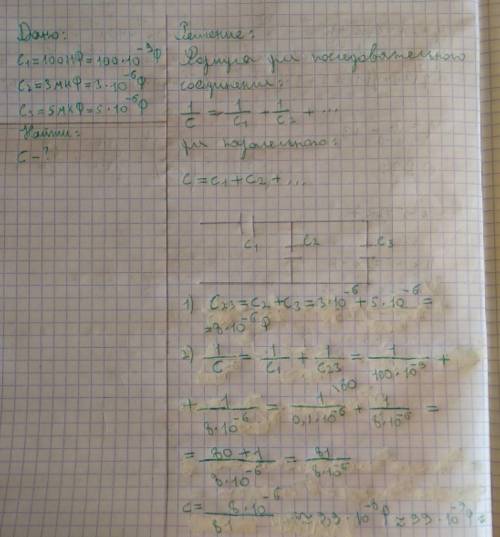 Дано:
C₁=100нФ=100·10⁻⁹Ф
C₂=3мкФ=3·10⁻⁶Ф
C₃=5мкФ=5·10⁻⁶Ф
Найти:
C-?
Решение:
Формула для последовательного
соединения:
1/C = 1/C₁ + 1/C₂ + ...
для паралельного:
C=C₁+C₂+...
C₁ C₂ C₃
1) C₂₃=C₂+C₃=3·10⁻⁶+5·10⁻⁶=
=8·10⁻⁶Ф
2) 1/C = 1/C₁ + 1/C₂₃ = 1/100·10⁻⁹ +
+ 1/8·10⁻⁶ = 1\80/0,1·10⁻⁶ + 1/8·10⁻⁶ =
= 80+1/8·10⁻⁶ = 81/8·10⁻⁶
C= 8·10⁻⁶/81 ≈99·10⁻⁹Ф≈99·10⁻⁹Ф=